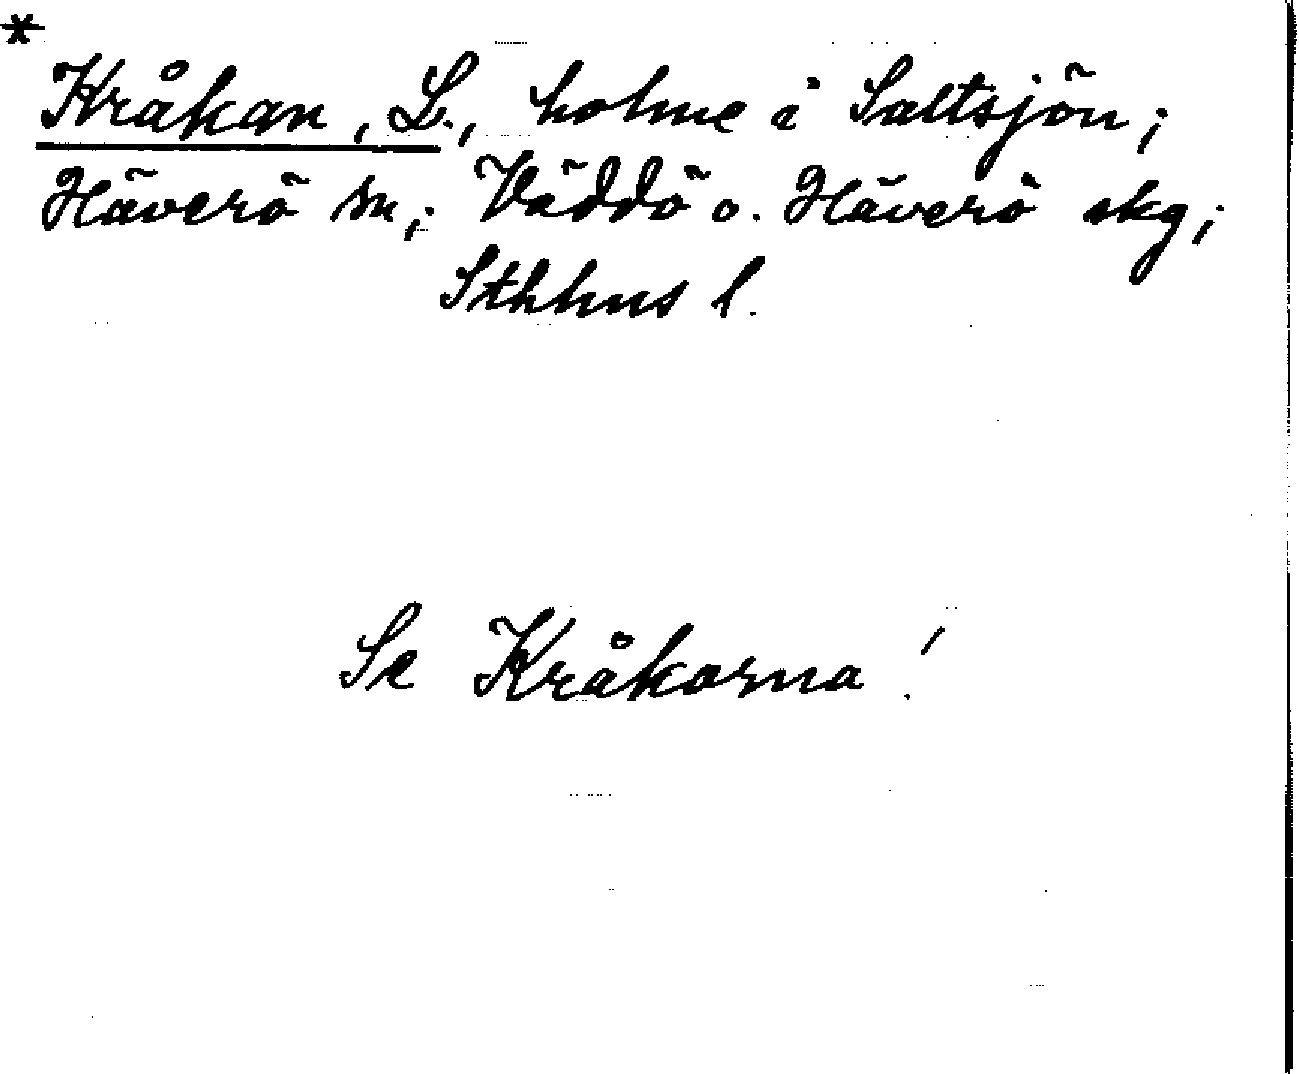 *
Kråkan, L., holme i Saltsjön;
Häverö sn; Väddö o. Häverö skg;
Sthlms l.
Se Kråkorna!